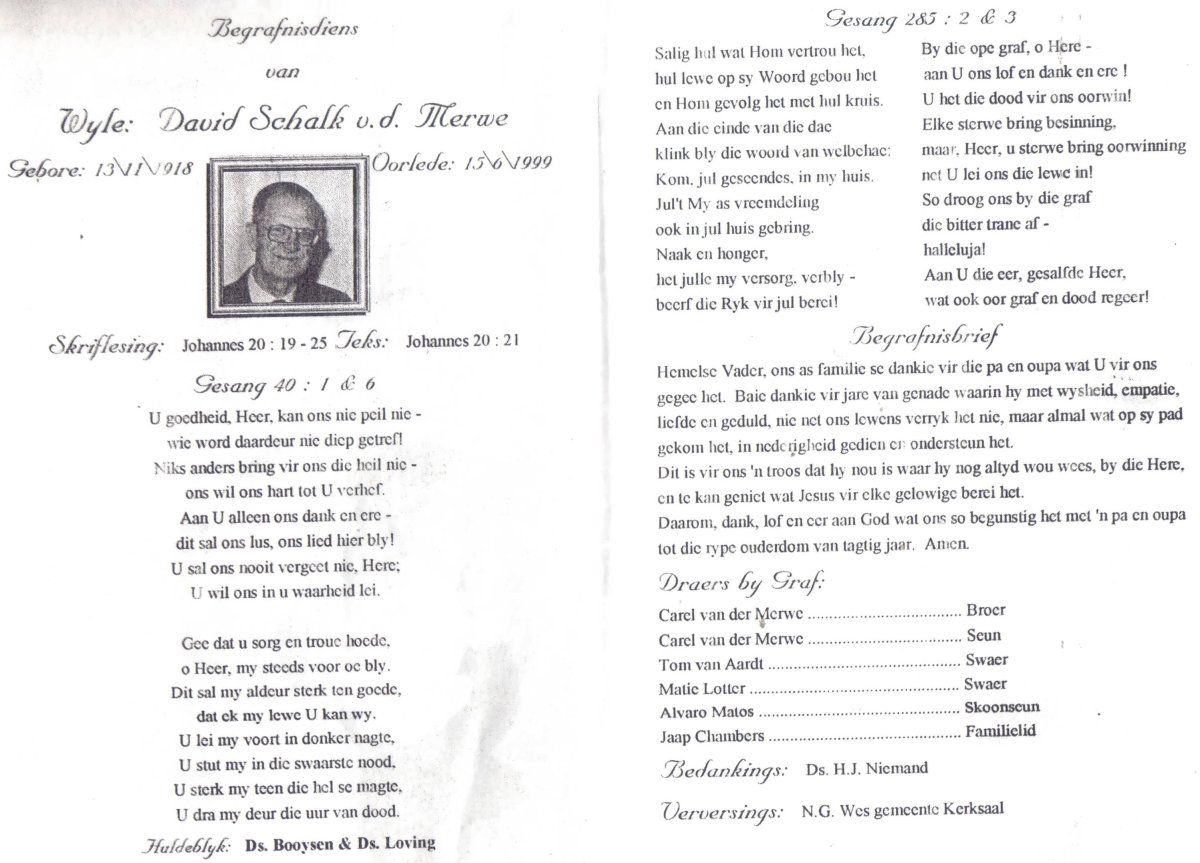 Begrafnisdiens
van
Wyle: David Schalk v.d. Merwe
Gebore: 13\11\1918
Oorlede: 15\6\1999
Skriflesing: Johannes 20 : 19 - 25 Teks: Johannes 20 : 21
Gesang 40 : 1 & 6
U goedheid, Heer, kan ons nie peil nie -
wie word daardeur nie diep getref!
Niks anders bring vir ons die heil nie -
ons wil ons hart tot U verhef.
Aan U alleen ons dank en ere -
dit sal ons lus, ons lied hier bly!
U sal ons nooit vergeet nie, Here;
U wil ons in u waarheid lei.
Gee dat u sorg en troue hoede,
o Heer, my steeds voor oe bly.
Dit sal my aldeur sterk ten goede,
dat ek my lewe U kan wy.
U lei my voort in donker nagte,
U stut my in die swaarste nood,
U sterk my teen die hel se magte,
U dra my deur die uur van dood.
Huldeblyk: Ds. Booysen & Ds. Loving
Gesang 285 : 2 & 3
Salig hul wat Hom vertrou het,
hul lewe op sy Woord gebou het
en Hom gevolg het met hul kruis.
Aan die einde van die dae
klink bly die woord van welbehae:
Kom, jul geseendes, in my huis.
Jul't My as vreemdeling
ook in jul huis gebring.
Naak en honger,
het julle my versorg, verbly -
beerf die Ryk vir jul berei!
By die ope graf, o Here -
aan U ons lof en dank en ere !
U het die dood vir ons oorwin!
Elke sterwe bring besinning,
maar, Heer, u sterwe bring oorwinning
net U lei ons die lewe in!
So droog ons by die graf
die bitter trane af -
halleluja!
Aan U die eer, gesalfde Heer,
wat ook oor graf en dood regeer!
Begrafnisbrief
Hemelse Vader, ons as familie se dankie vir die pa en oupa wat U vir ons
gegee het. Baie dankie vir jare van genade waarin hy met wysheid, empatie,
liefde en geduld, nie net ons lewens verryk het nie, maar almal wat op sy pad
gekom het, in nederigheid gedien en ondersteun het.
Dit is vir ons 'n troos dat hy nou is waar hy nog altyd wou wees, by die Here,
en te kan geniet wat Jesus vir elke gelowige berei het.
Daarom, dank, lof en eer aan God wat ons so begunstig het met 'n pa en oupa
tot die rype ouderdom van tagtig jaar. Amen.
Draers by Graf:
Carel van der Merwe .................................... Broer
Carel van der Merwe .................................... Seun
Tom van Aardt ............................................ Swaer
Matie Lotter ................................................ Swaer
Alvaro Matos .............................................. Skoonseun
Jaap Chambers ............................................ Familielid
Bedankings: Ds. H.J. Niemand
Verversings: N.G. Wes gemeente Kerksaal